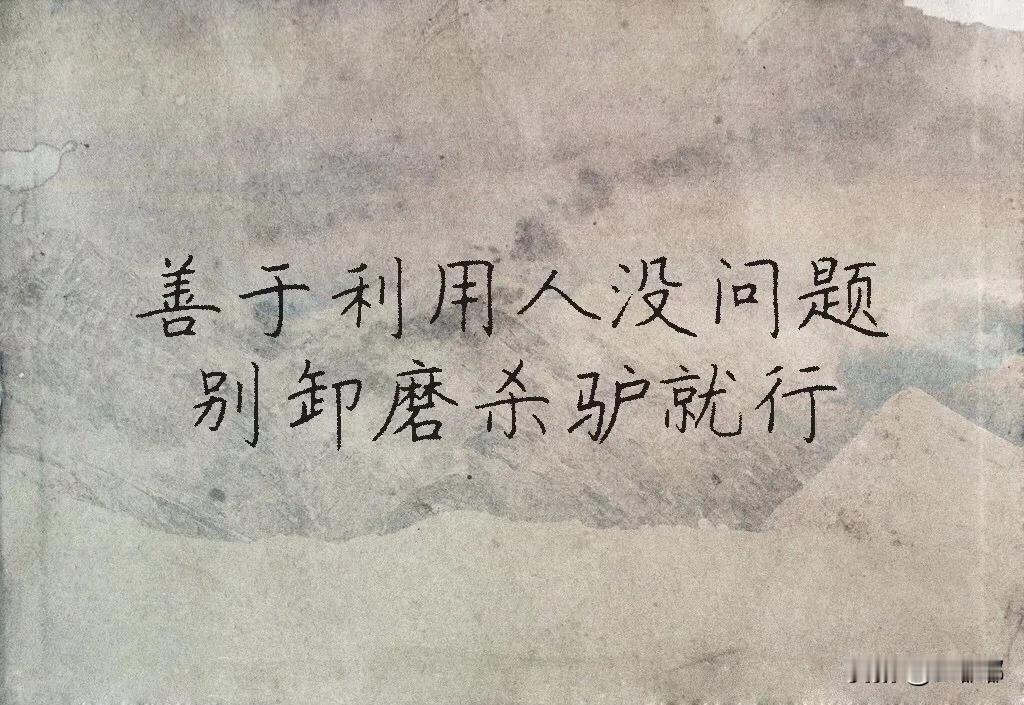 善于利用人没问题
别卸磨杀驴就行